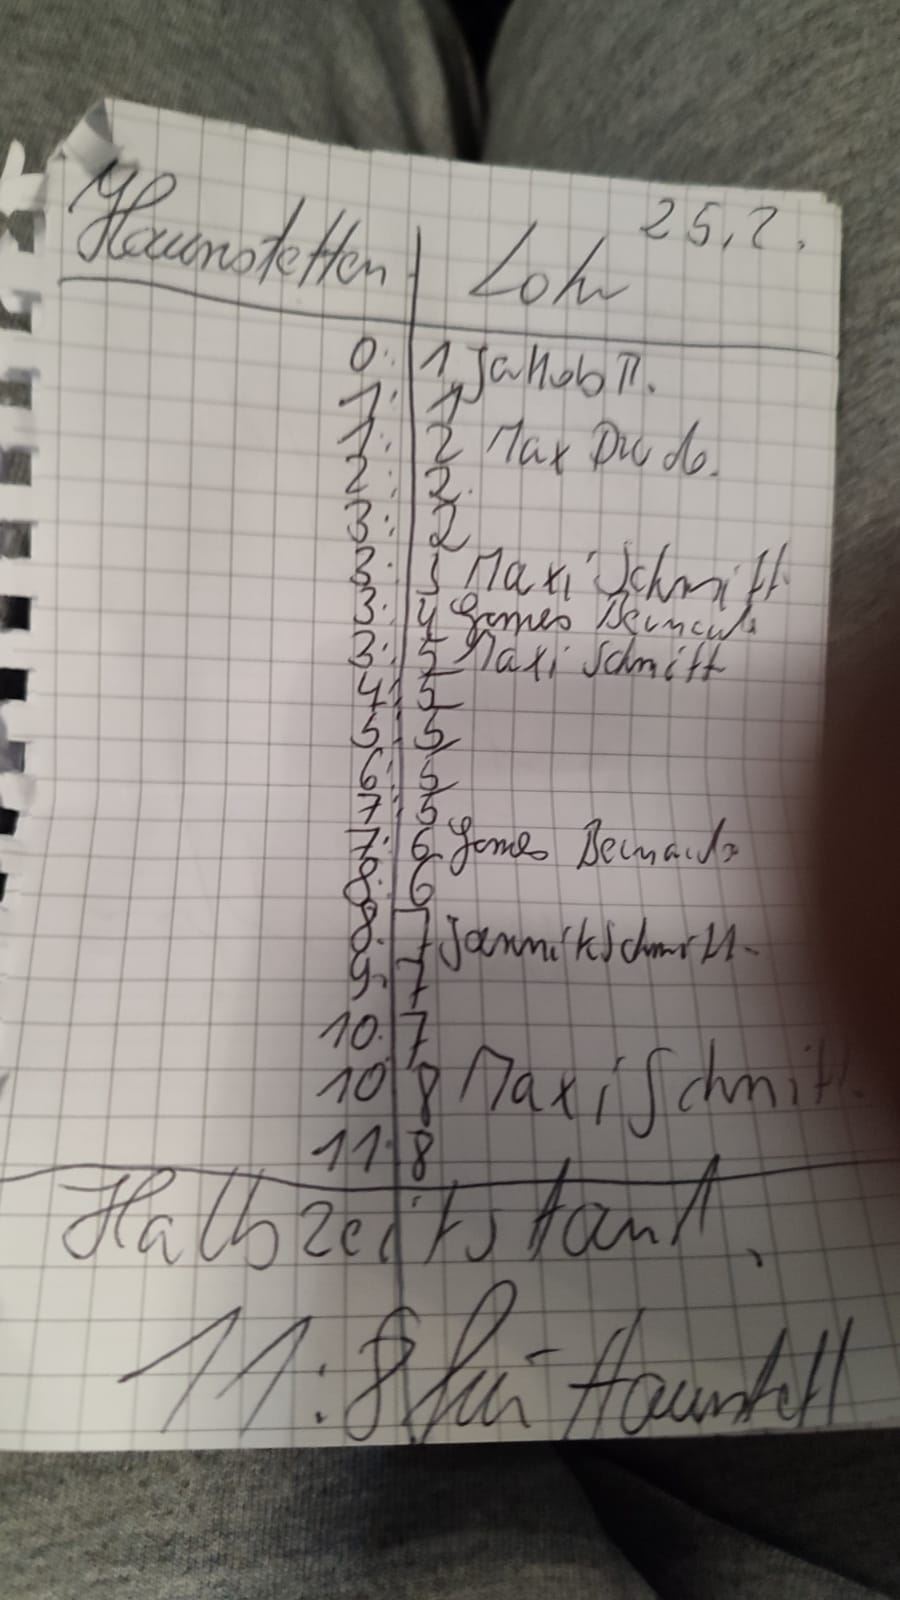 25.2.
Haunstetten | Lohr
0: 1 Jakob
1: 1
1: 2 Max
2: 2
3: 2
3: 3 Maxi Schmitt
3: 4
3: 5 Maxi Schmitt
4: 5
5: 5
6: 5
7: 5
7: 6
8: 6
8: 7 Jannik Schmitt
9: 7
10: 7
10 8 Maxi Schmitt
11: 8
Halbzeitstant.
11:8 für Haunstett